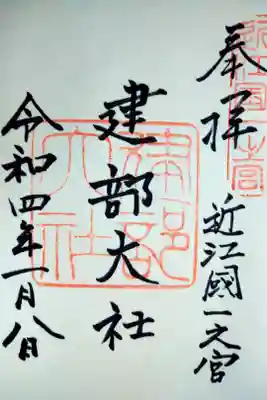 奉拝
近江國一之宮
建部大社
令和四年一月八日
近江国一之宮
建部大社